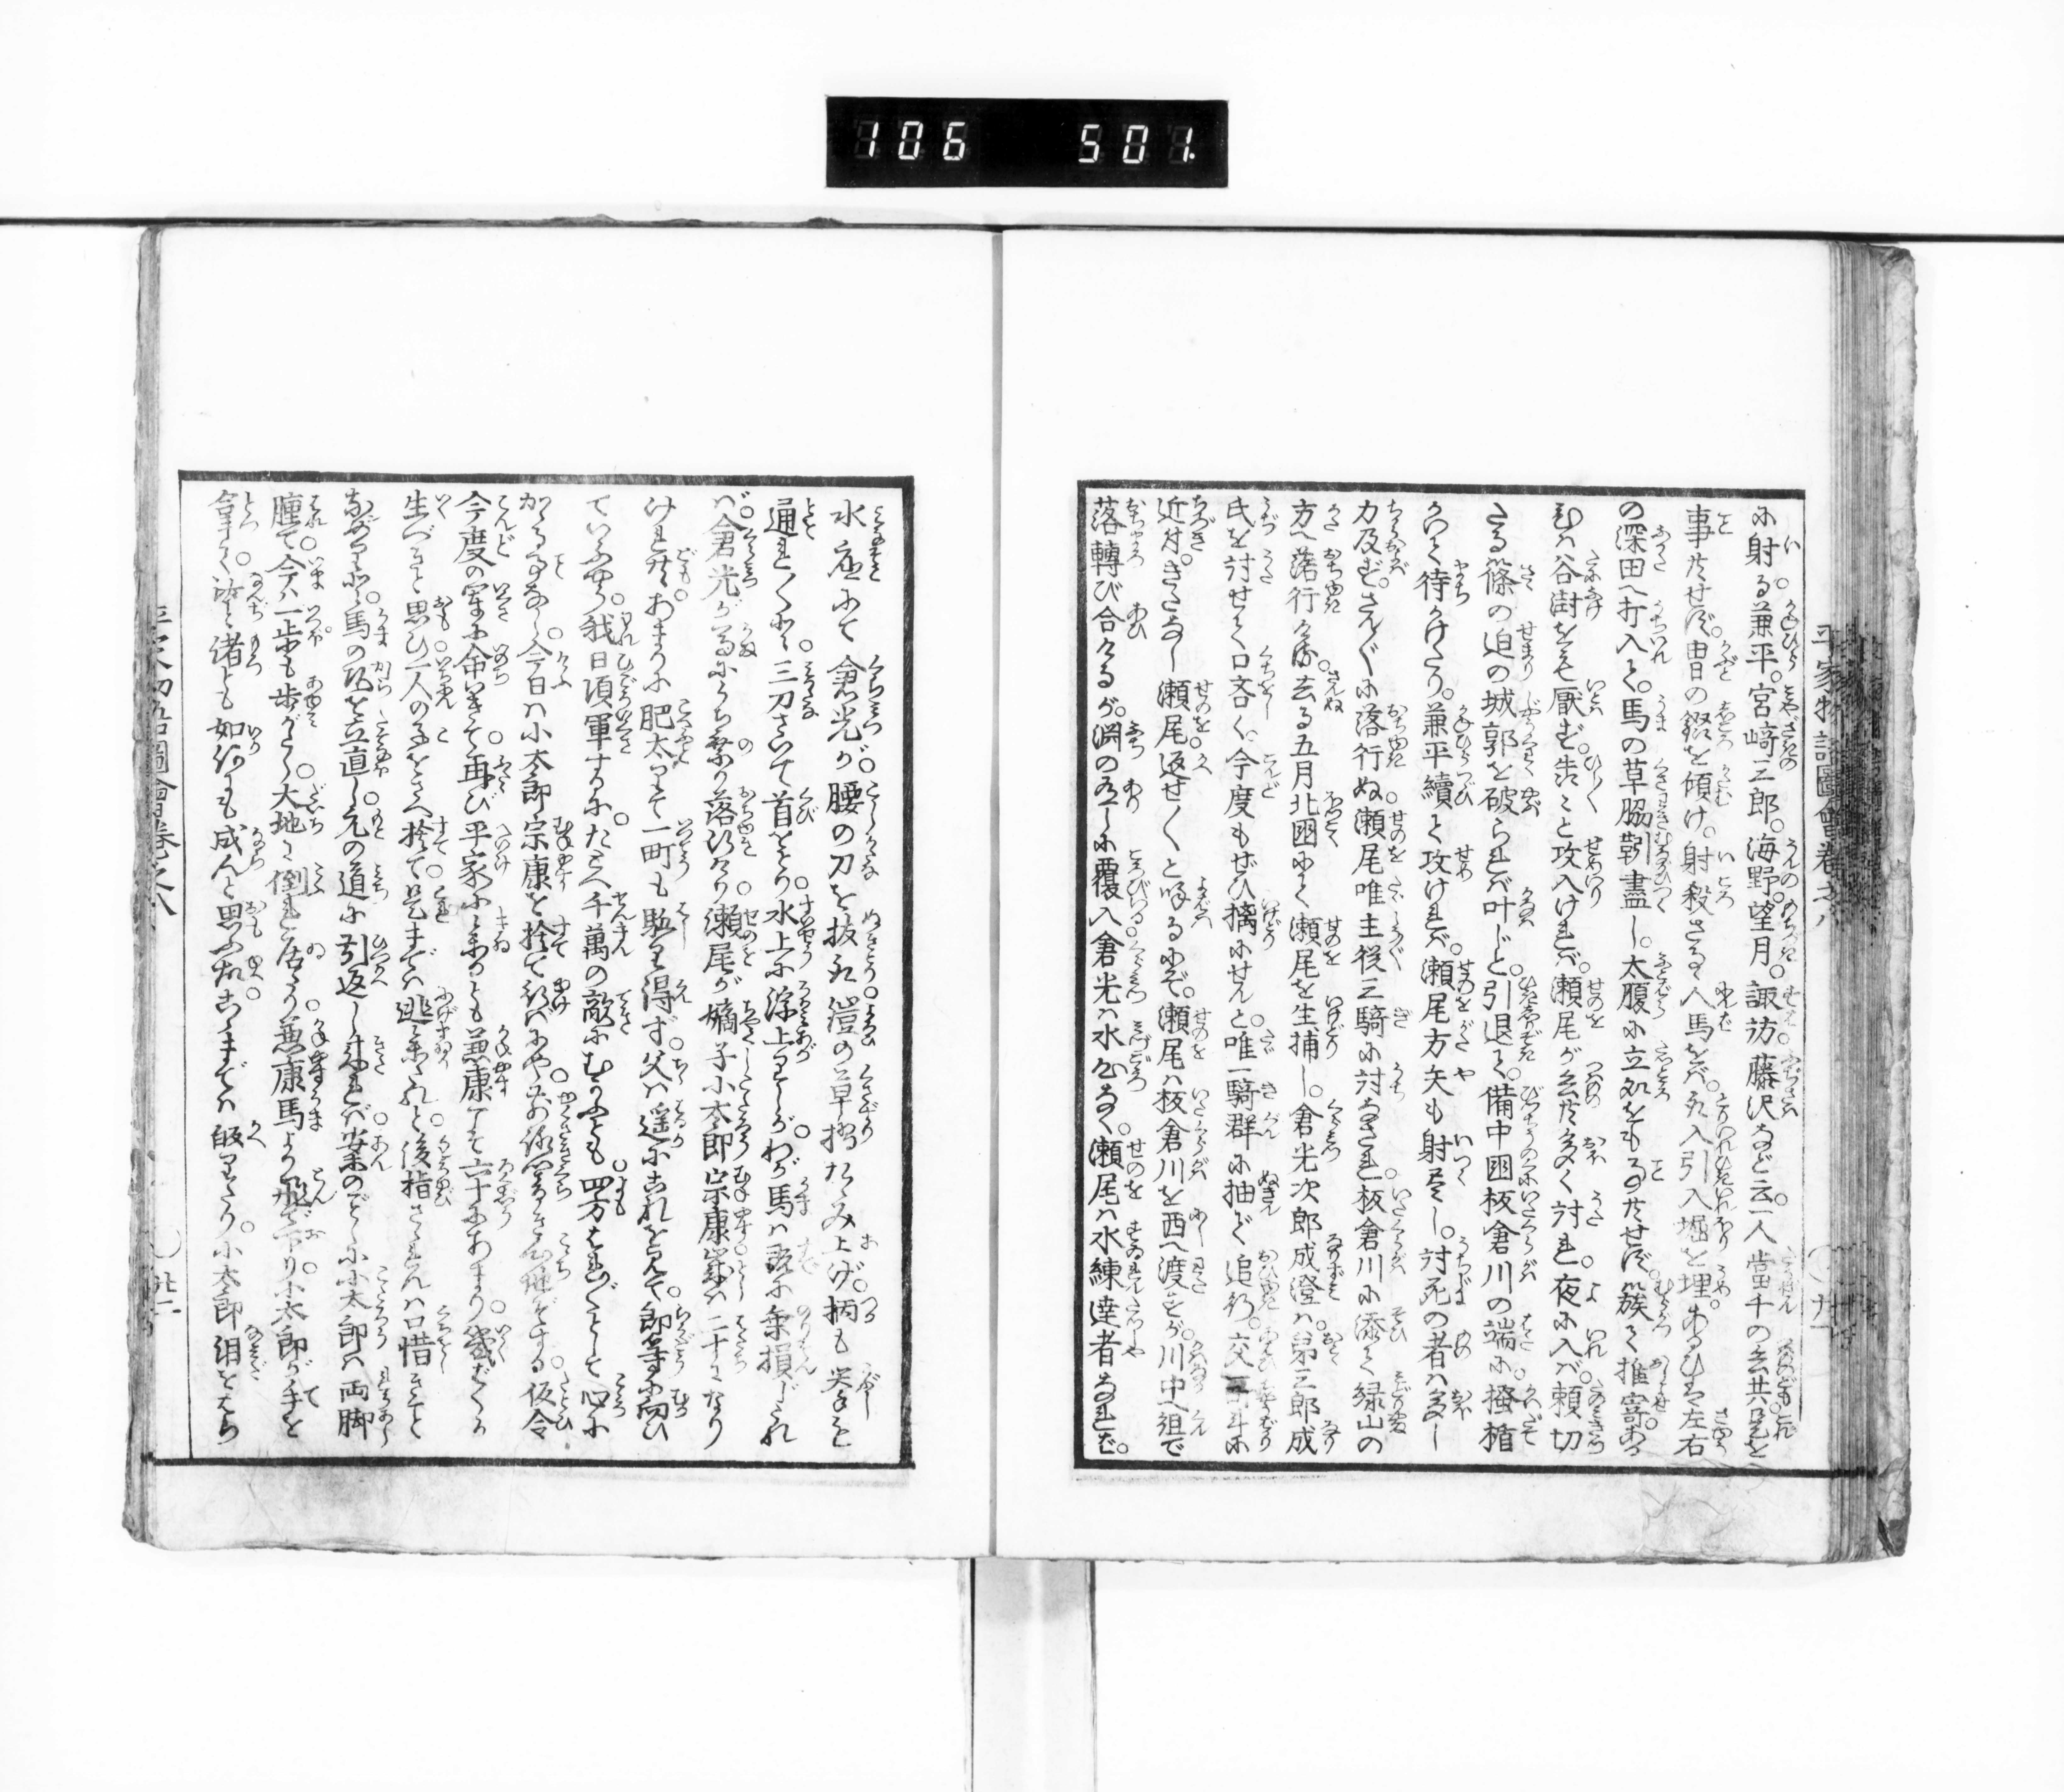 106 501
平家物語圖會巻之八
に射る。兼平。宮﨑三郎。海野。望月。諏訪。藤沢など云。一人當千の兵共。
事共せず。冑の錣を傾け。射殺さるゝ人馬をバ。取入引入堀を埋。あるひは左右
の深田へ打入て。馬の草脇鞅盡し。太腹に立処をも事共せず。簇て推寄。ある
ひハ谷澗をも厭ず。ひしと攻入けれバ。瀬尾が兵共多く討れ。夜に入バ。頼切
たる篠の迫の城郭を破られバ叶じと。引退て。備中国板倉川の端に。掻楯
かいて待かけたり。兼平續て攻けれバ。瀬尾方矢も射尽し。討死の者ハ多し
力及ず。さん〴〵に落行ぬ。瀬尾唯主從三騎に討なされ。板倉川に添て緑山の
方へ落行ける。去る五月北国にて瀬尾を生捕し。倉光次郎成澄ハ。弟三郎成
氏を討せて口吝く。今度もぜひ擒にせんと。唯一騎群に抽で追行。
近付。きたなし瀬尾返せ〳〵と呼るにぞ。瀬尾ハ板倉川を西へ渡せしが。川中へ組で
落轉び合けるが。渕の有しに覆入。倉光ハ水心なく。瀬尾ハ水練達者なれば。
水底にて倉光が。腰の刀を抜取。鎧の草摺たゝみ上げ。柄も拳も
通れ〳〵と。三刀さいて首をとり。水上に浮上りしが。わが馬ハ既に乗損じたれ
バ。倉光が馬にうち乗り落行けり。瀬尾が嫡子小太郎宗康。歳ハ二十になり
けれ共。あまりに肥太りて一町も駈り得ず。父ハ遥に是を見て。郎等に向ひ
ていふやう。我日頃軍するに。たとへ千萬の敵にむかふとも。四方はれ〴〵として心に
かゝる事なし。今日ハ小太郎宗康を捨て行バにや。前後闇き心地ぞする。仮令
今度の軍に命いきて。再び平家に參るとも。兼康こそ六十にあまり。幾ばくか
生べきと思ひ。一人の子をさへ捨て。是までハ逃參れと。後指さゝれんハ口惜きこと
なめりと。馬の頭を立直し。元の道に引返し。來れバ案のごとく小太郎ハ両脚
腫て。今ハ一歩も歩がたく。大地に倒れ居たり。兼康馬より飛で下り。小太郎が手を
拿て。汝と諸とも如何にも成んと思ふ故。こゝまでハ皈りたり。小太郎泪をはら
平家物語圖會巻之八
廿二